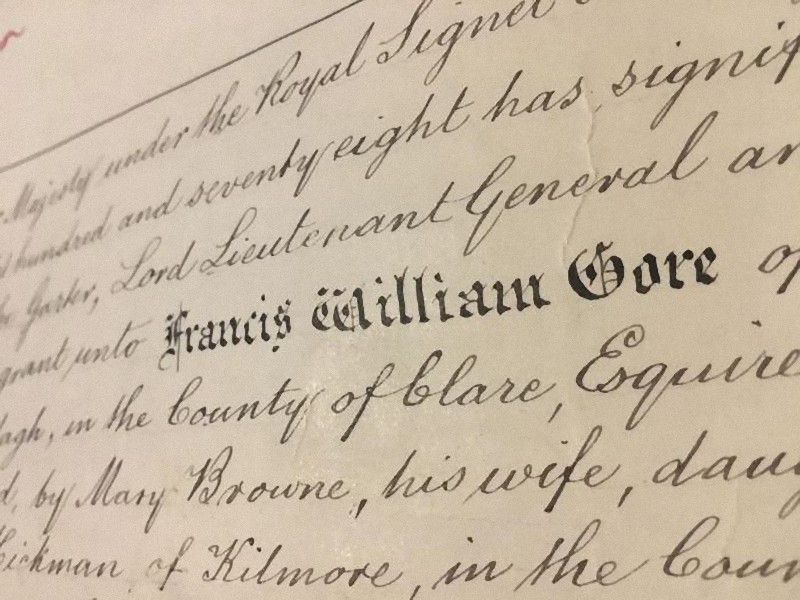 Majesty under the Royal Signet
hundred and seventy eight has signif
he Garter, Lord Lieutenant General an
grant unto Francis William Gore of
lagh, in the County of Clare, Esquire
d, by Mary Browne, his wife, daug
Hickman of Kilmore, in the Coun